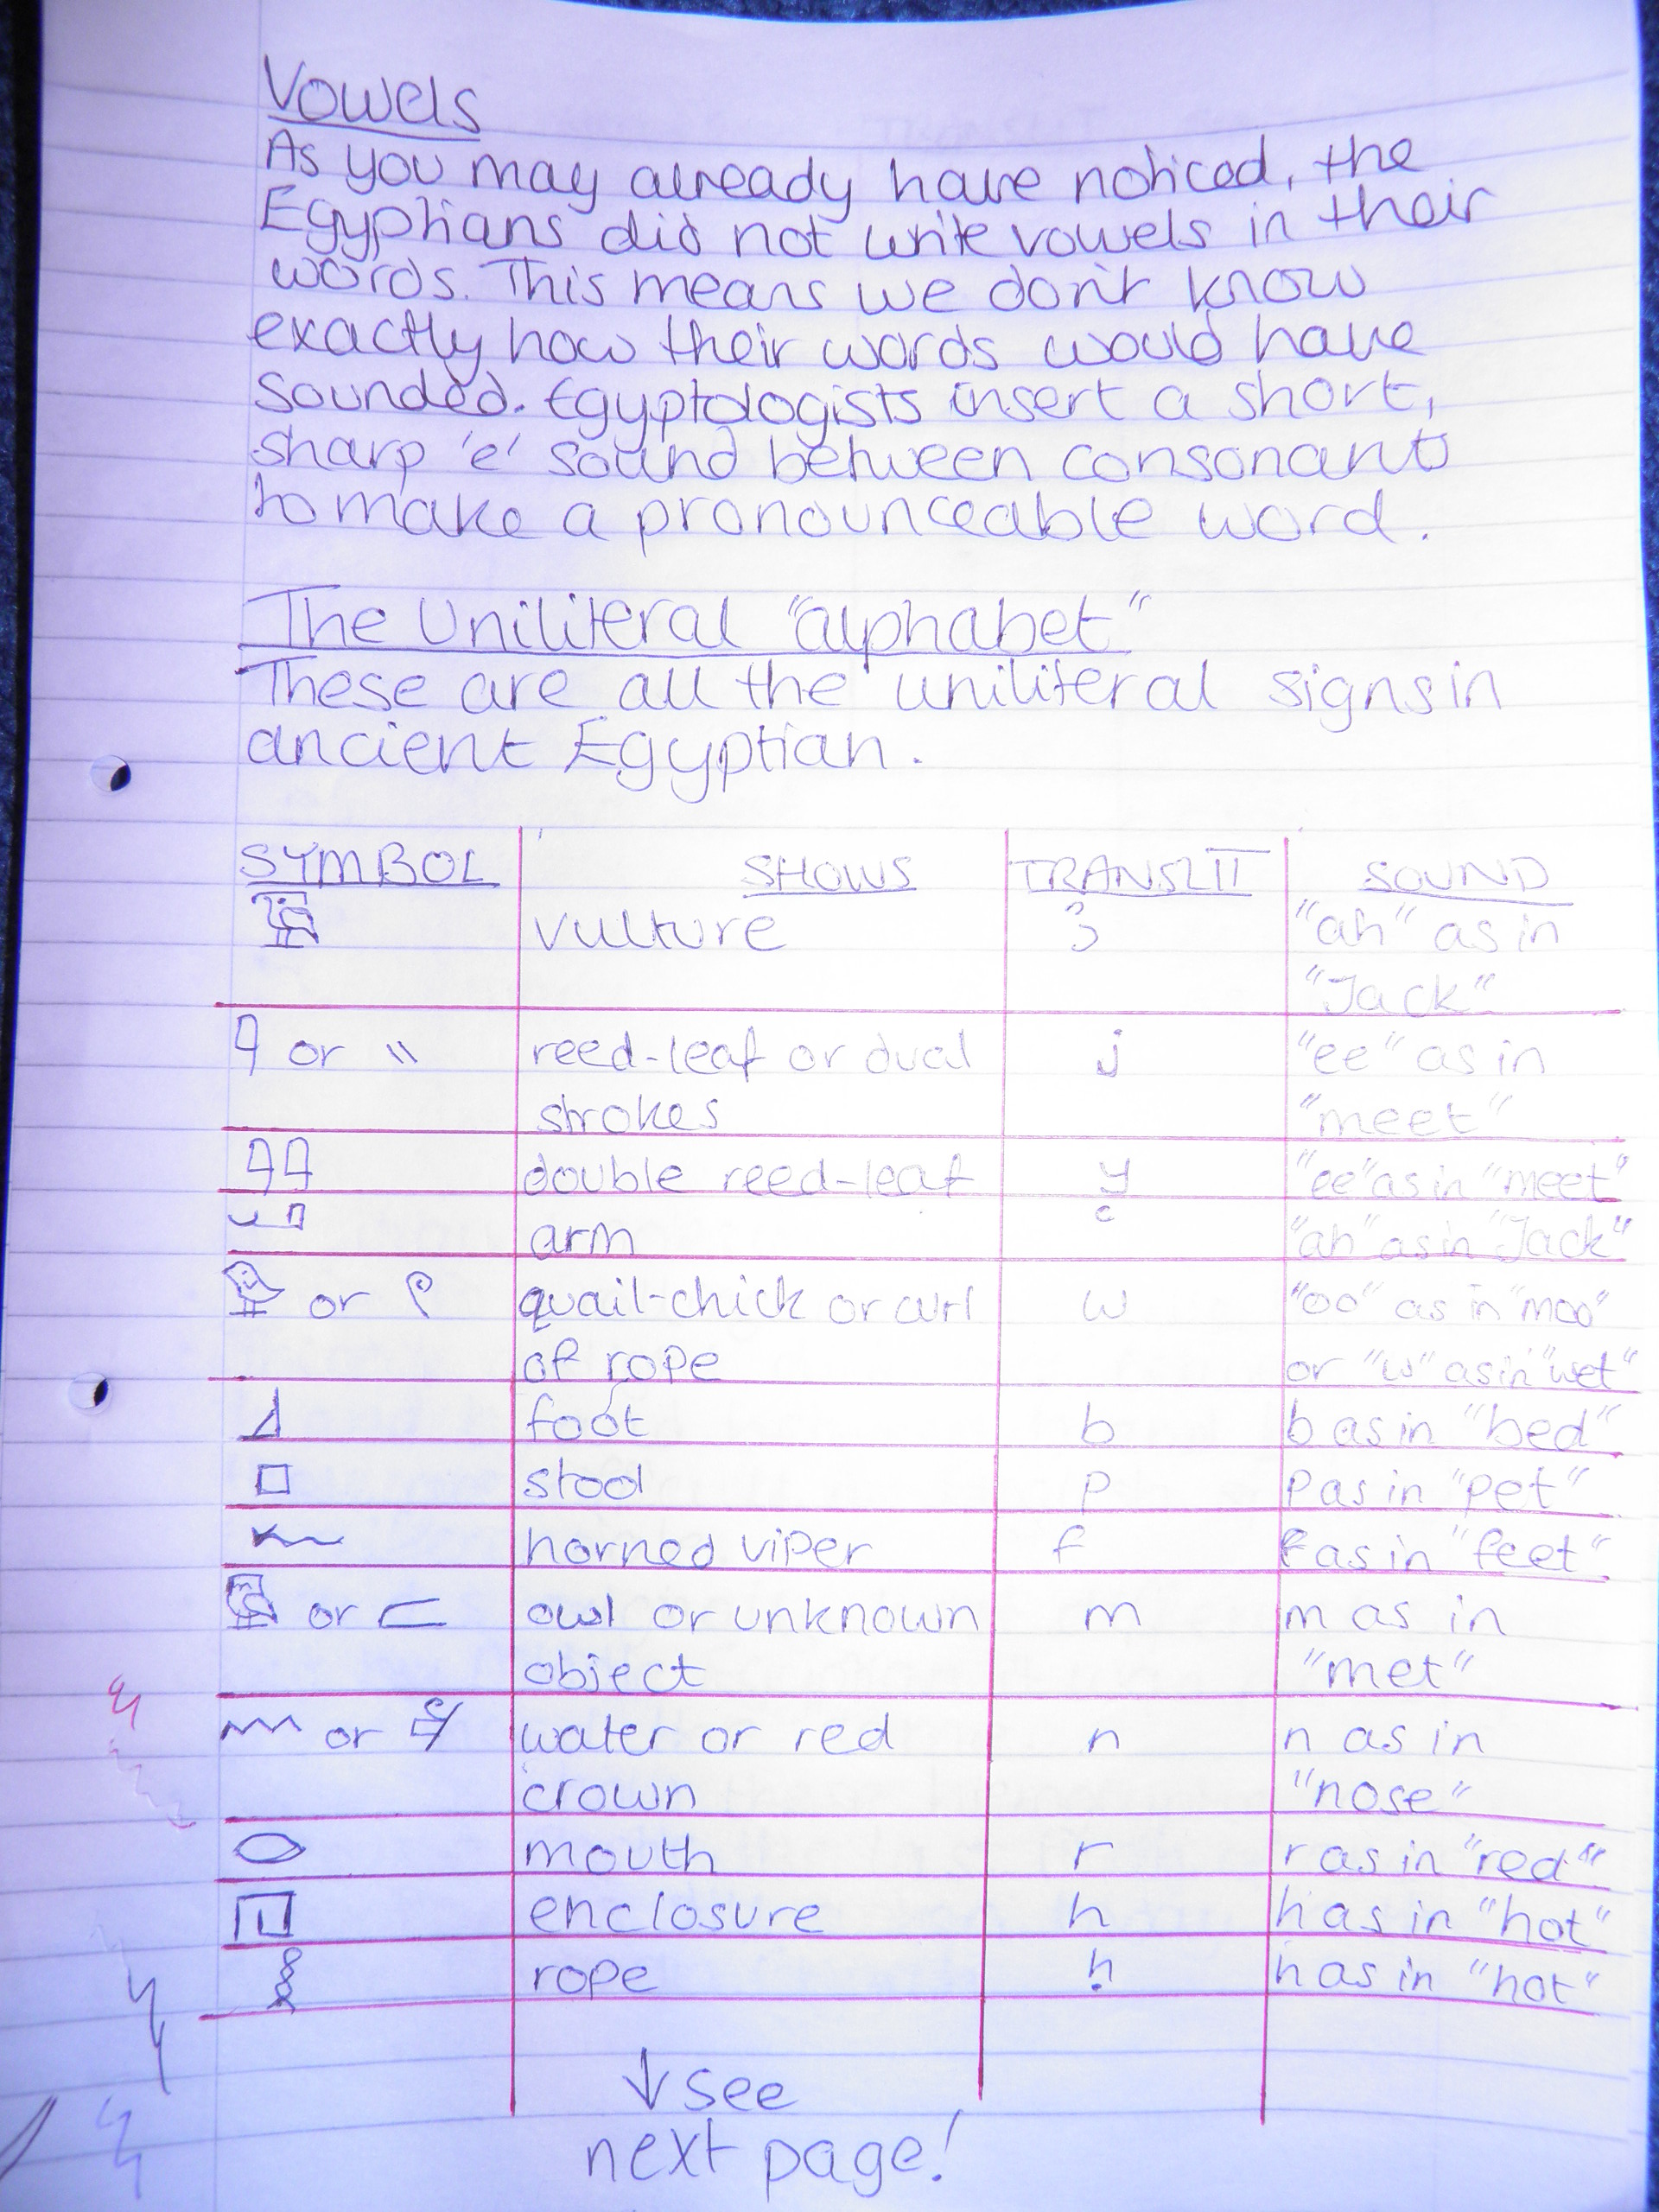 Vowels
As you may already have noticed, the
Egyptians did not write vowels in their
words. This means we don't know
exactly how their words would have
sounded. Egyptologists insert a short,
sharp 'e' sound between consonants
to make a pronounceable word.
The Uniliteral "alphabet"
These are all the uniliteral signs in
ancient Egyptian.
SYMBOL SHOWS TRANSLIT SOUND
vulture ꜣ "ah" as in
"Jack"
or \\ reed-leaf or dual j "ee" as in
strokes "meet"
double reed-leaf y "ee" as in "meet"
arm ꜥ "ah" as in "Jack"
or quail-chick or curl w "oo" as in "moo"
of rope or "w" as in "wet"
foot b b as in "bed"
stool p p as in "pet"
horned viper f f as in "feet"
or owl or unknown m m as in
object "met"
or water or red n n as in
crown "nose"
mouth r r as in "red"
enclosure h h as in "hot"
rope ḥ h as in "hot"
↓ see
next page!